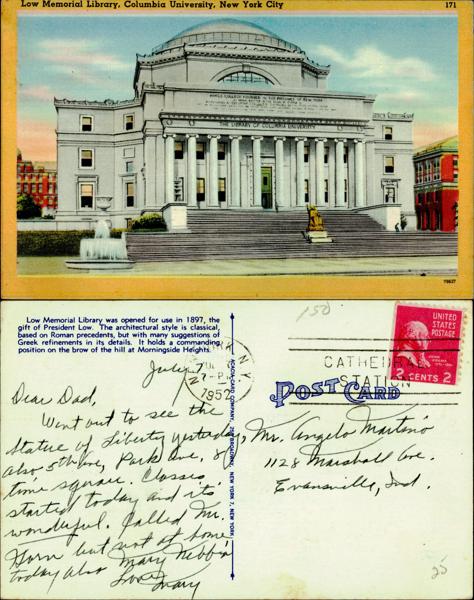 Low Memorial Library, Columbia University, New York City 171
KINGS COLLEGE FOUNDED IN THE PROVINCE OF NEW YORK
THE LIBRARY OF COLUMBIA UNIVERSITY
70627
Low Memorial Library was opened for use in 1897, the
gift of President Low. The architectural style is classical,
based on Roman precedents, but with many suggestions of
Greek refinements in its details. It holds a commanding
position on the brow of the hill at Morningside Heights.
July 7
Dear Dad,
Went out to see the
Statue of Liberty yesterday,
also 5th Ave, Park Ave, &
time square. Classes
started today and its
wonderful. Called Mr.
Horn but not at home
today also Mary Nebbia
Love Mary
N.Y.
7-PM
1952
ACACIA CARD COMPANY, BROADWAY, NEW YORK 7, NEW YORK
150
CATHEDRAL
STATION
POST CARD
UNITED
STATES
POSTAGE
JOHN
ADAMS
2 CENTS 2
Mr. Angelo Martino
1128 Marshall Ave.
Evansville, Ind.
25